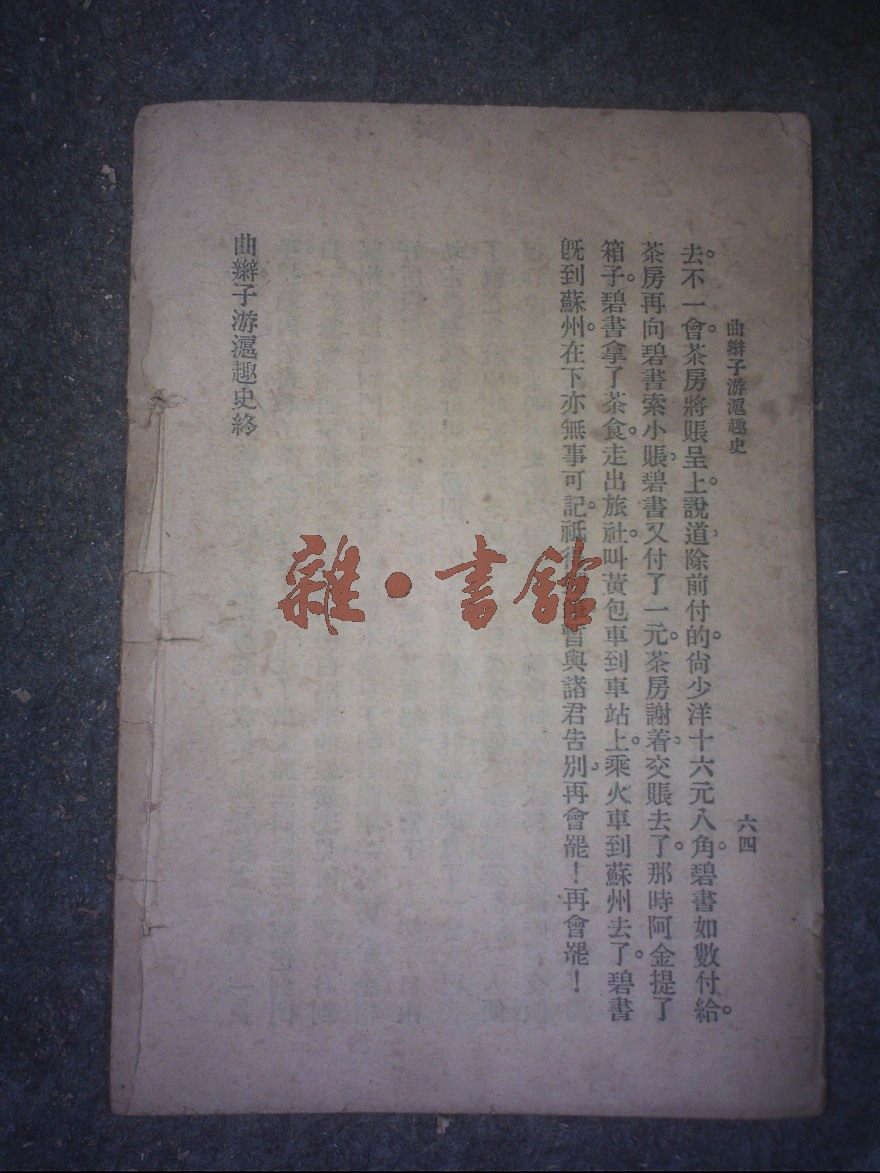 曲辮子游滬趣史
六四
去。不一會。茶房將賬呈上。說道、除前付的。尙少洋十六元八角。碧書如數付給。
茶房再向碧書索小賬、碧書又付了一元。茶房謝着、交賬去了。那時阿金提了
箱子。碧書拿了茶食。走出旅社。叫黃包車到車站上。乘火車到蘇州去了。碧書
旣到蘇州。在下亦無事可記。祇得 暫與諸君告別、再會罷！再會罷！
曲辮子游滬趣史終
雜·書館